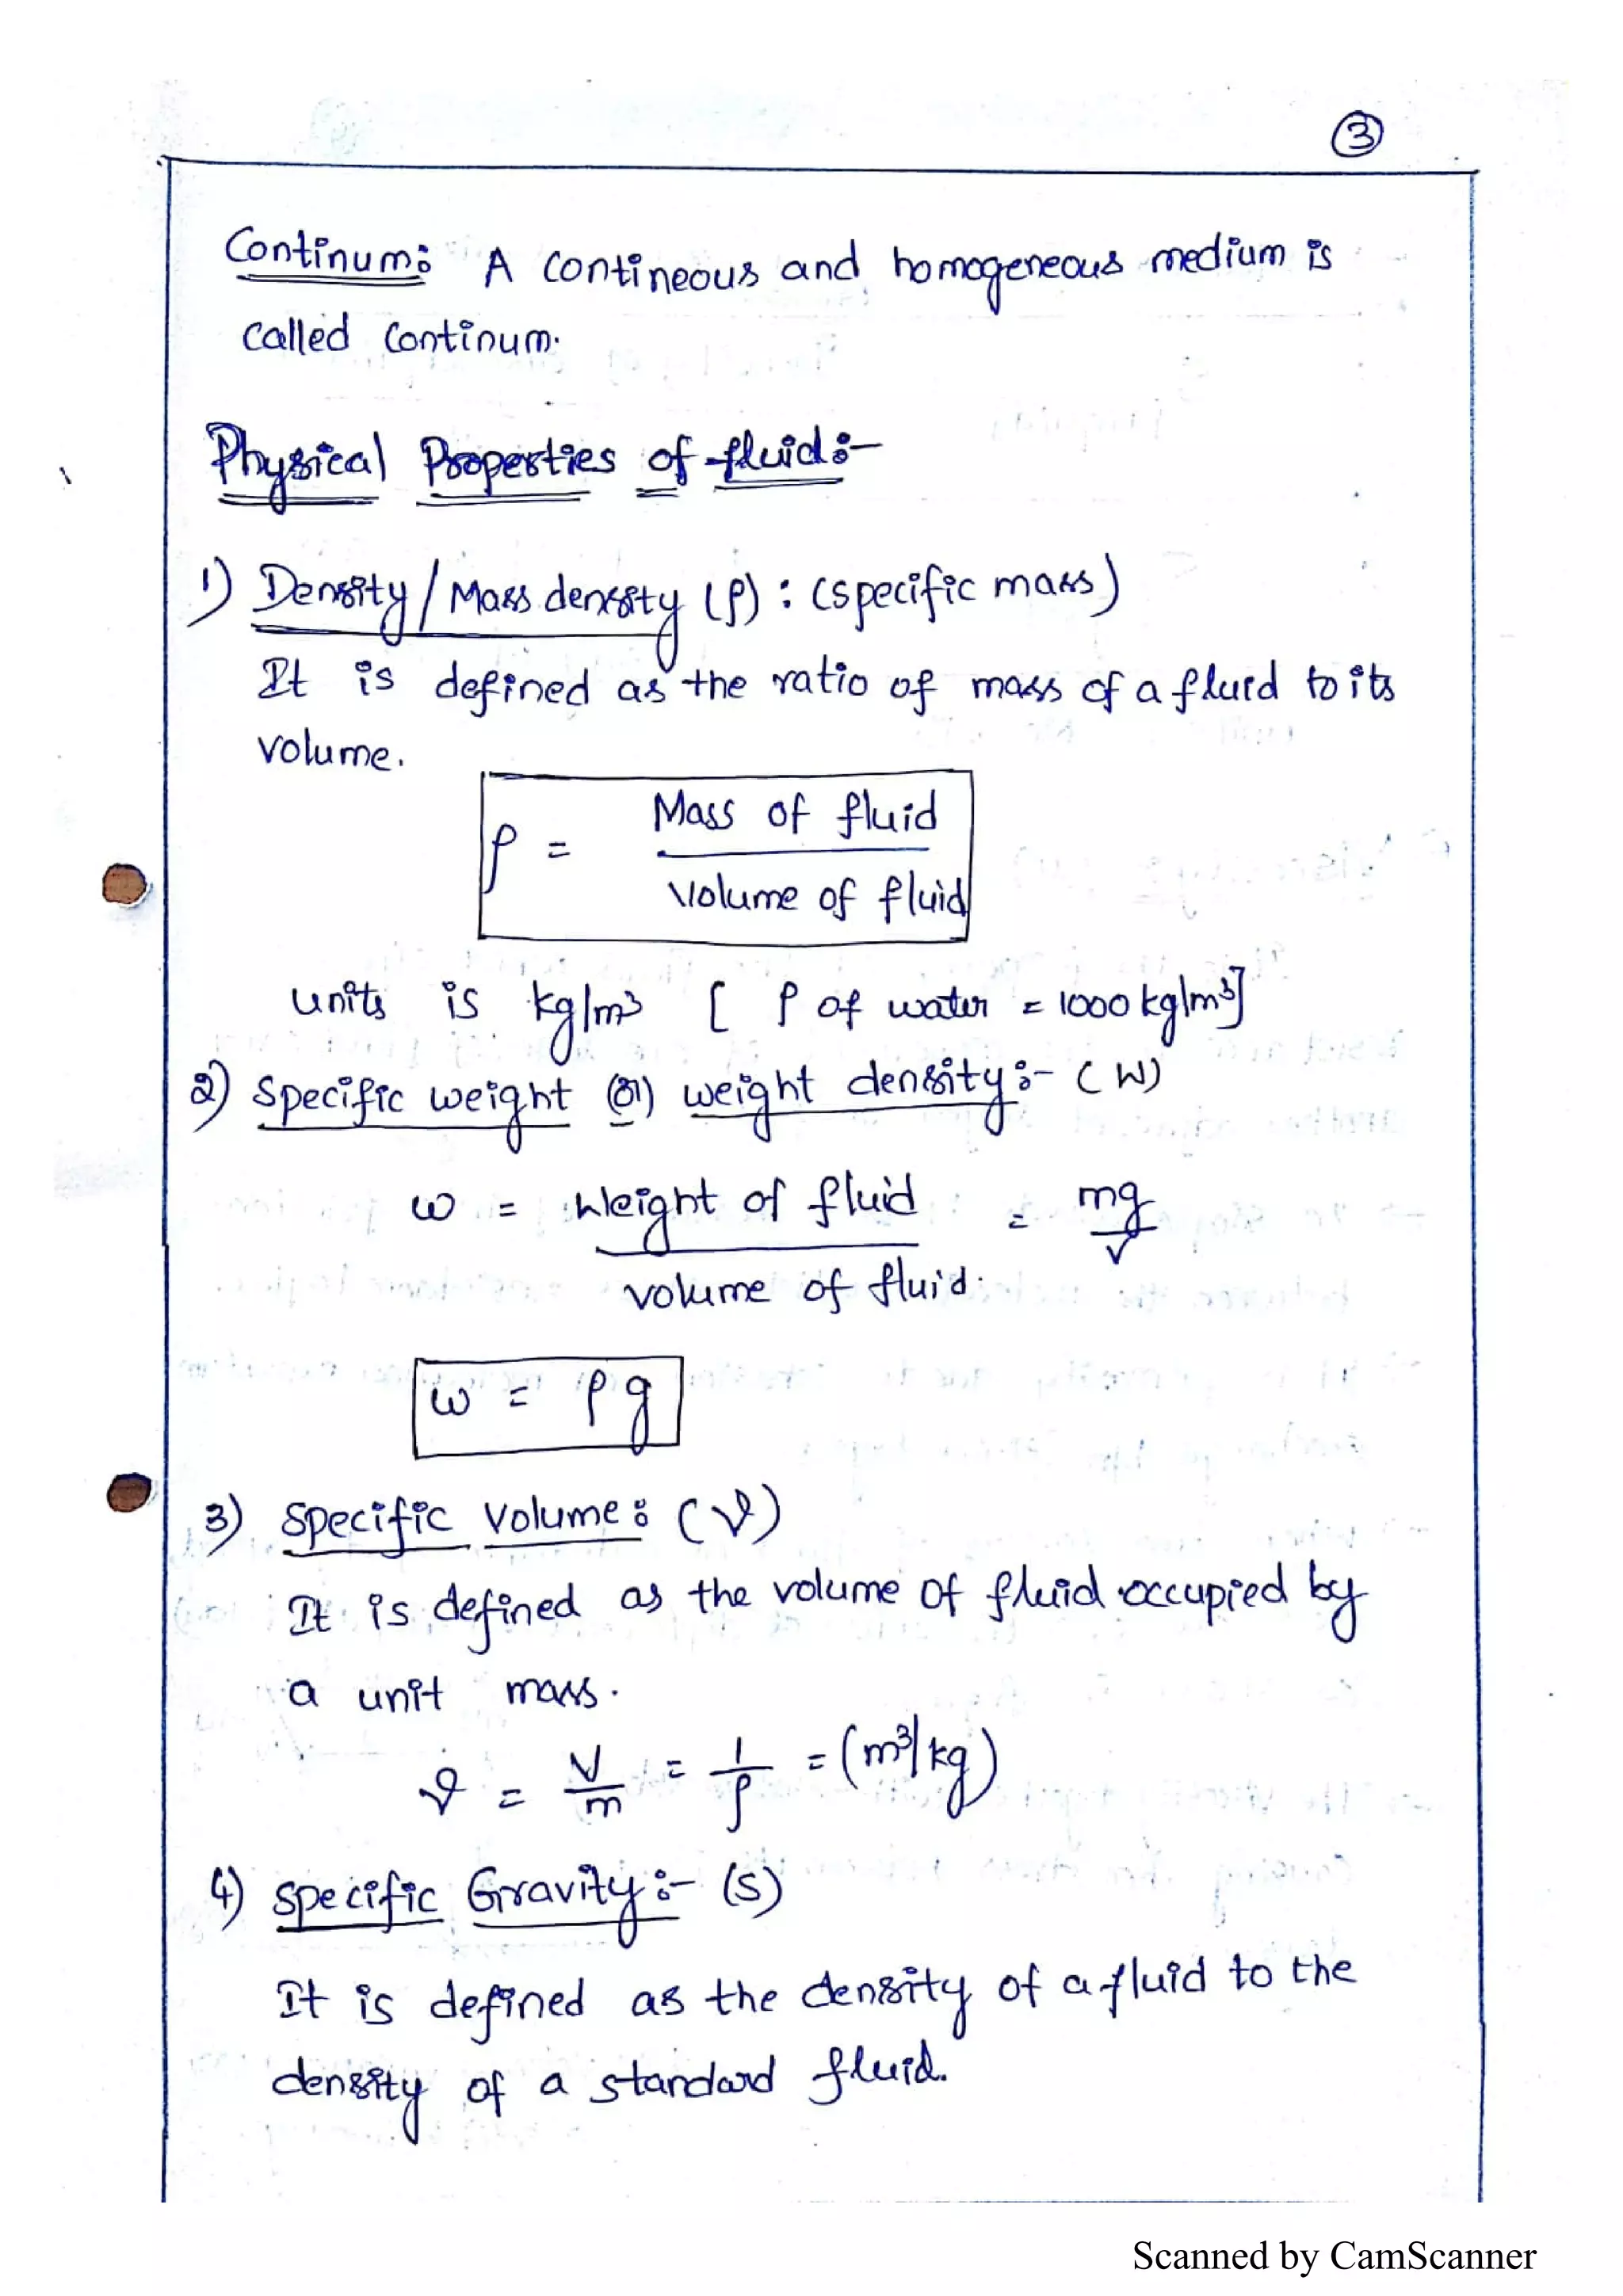 3
Continum: A contineous and homogeneous medium is
called Continum.
Physical Properties of fluid:-
1) Density / Mass density (ρ) : (specific mass)
It is defined as the ratio of mass of a fluid to its
volume.
ρ = Mass of fluid
Volume of fluid
units is kg/m³ [ ρ of water = 1000 kg/m³]
2) Specific weight (or) weight density :- (W)
ω = Weight of fluid = mg
volume of fluid. V
ω = ρg
3) Specific Volume : (V)
It is defined as the volume of fluid occupied by
a unit mass.
V = V/m = 1/ρ = (m³/kg)
4) Specific Gravity :- (S)
It is defined as the density of a fluid to the
density of a standard fluid.
Scanned by CamScanner